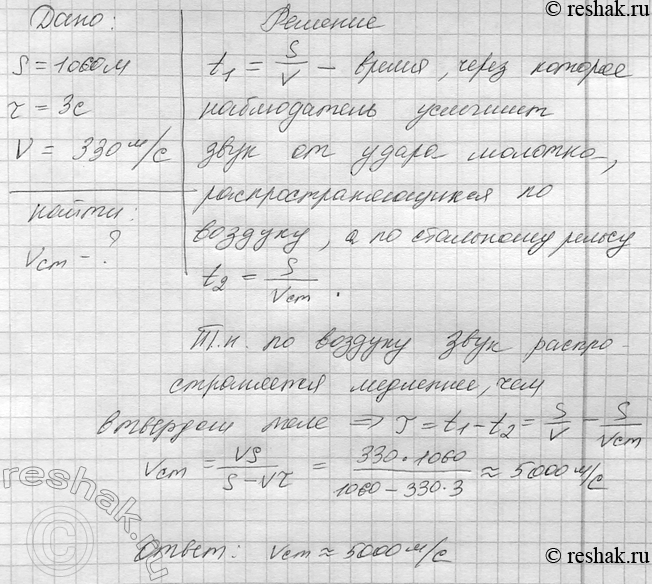 © reshak.ru
Дано:
S = 1060 м
τ = 3c
V = 330 м/с
Найти:
Vcm - ?
Решение
t₁ = S/V - время, через которое
наблюдатель услышит
звук от удара молотка,
распространяющийся по
воздуху, а по стальному рельсу
t₂ = S/Vcm.
Т.к. по воздуху звук распро-
страняется медленнее, чем
в твердом теле ⇒ τ = t₁ - t₂ = S/V - S/Vcm
Vcm = VS/(S - Vτ) = 330·1060/(1060 - 330·3) ≈ 5000 м/с
Ответ: Vcm ≈ 5000 м/с
reshak.ru
© reshak.ru